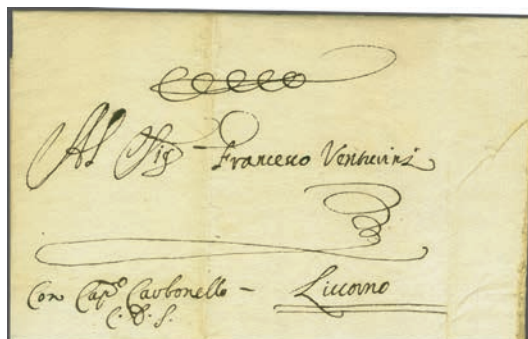 Al Sig.r Francesco Venturini
Con Cap.o Carbonello – Livorno
C. D. S.